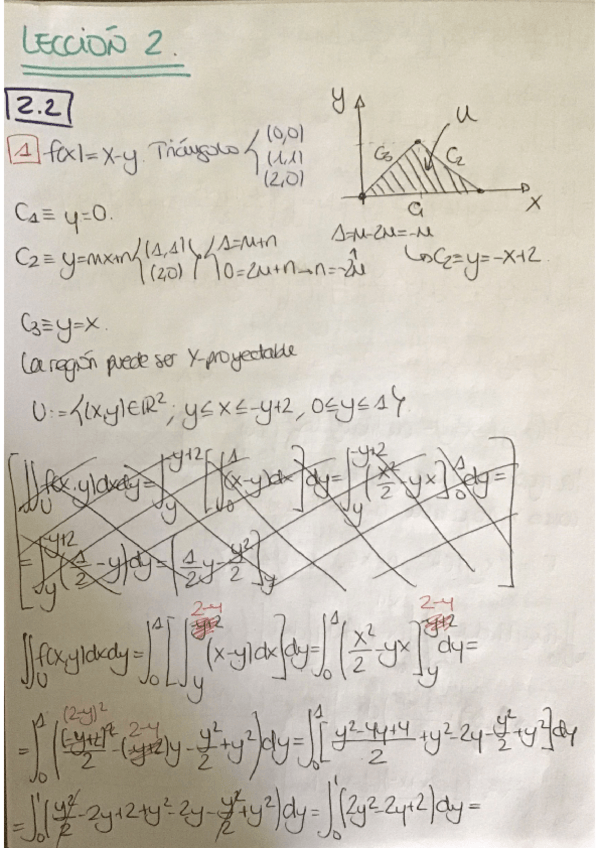 LECCIÓN 2.
2.2
1 f(x)=x-y. Triángulo { (0,0) (1,1) (2,0)
y
C3 C2 U
C1 x
C1 ≡ y=0.
C2 ≡ y=mx+n { (1,1) (2,0) } { 1=m+n 0=2m+n → n=-2m
1=m-2m=-m
↳ C2 ≡ y=-x+2
C3 ≡ y=x.
La región puede ser x-proyectable
U:={(x,y)∈ℝ²; y≤x≤-y+2, 0≤y≤1}
[∬_U f(x,y)dxdy=∫_y^{-y+2} [∫_0^1 (x-y)dx]dy=∫_y^{-y+2} (x²/2 - yx]_0^1 dy=
=∫_y^{-y+2} (1/2 - y)dy=(1/2 y - y²/2]_y^{y+2}]
∬_U f(x,y)dxdy=∫_0^1 [∫_y^{2-y} (x-y)dx]dy=∫_0^1 (x²/2 - yx]_y^{2-y} dy=
=∫_0^1 ((2-y)²/2 - (2-y)y - y²/2 + y²)dy=∫_0^1 [(y²-4y+4)/2 + y²-2y - y²/2 + y²]dy
=∫_0^1 (y²/2 - 2y+2+y²-2y - y²/2 + y²)dy=∫_0^1 (2y²-2y+2)dy=